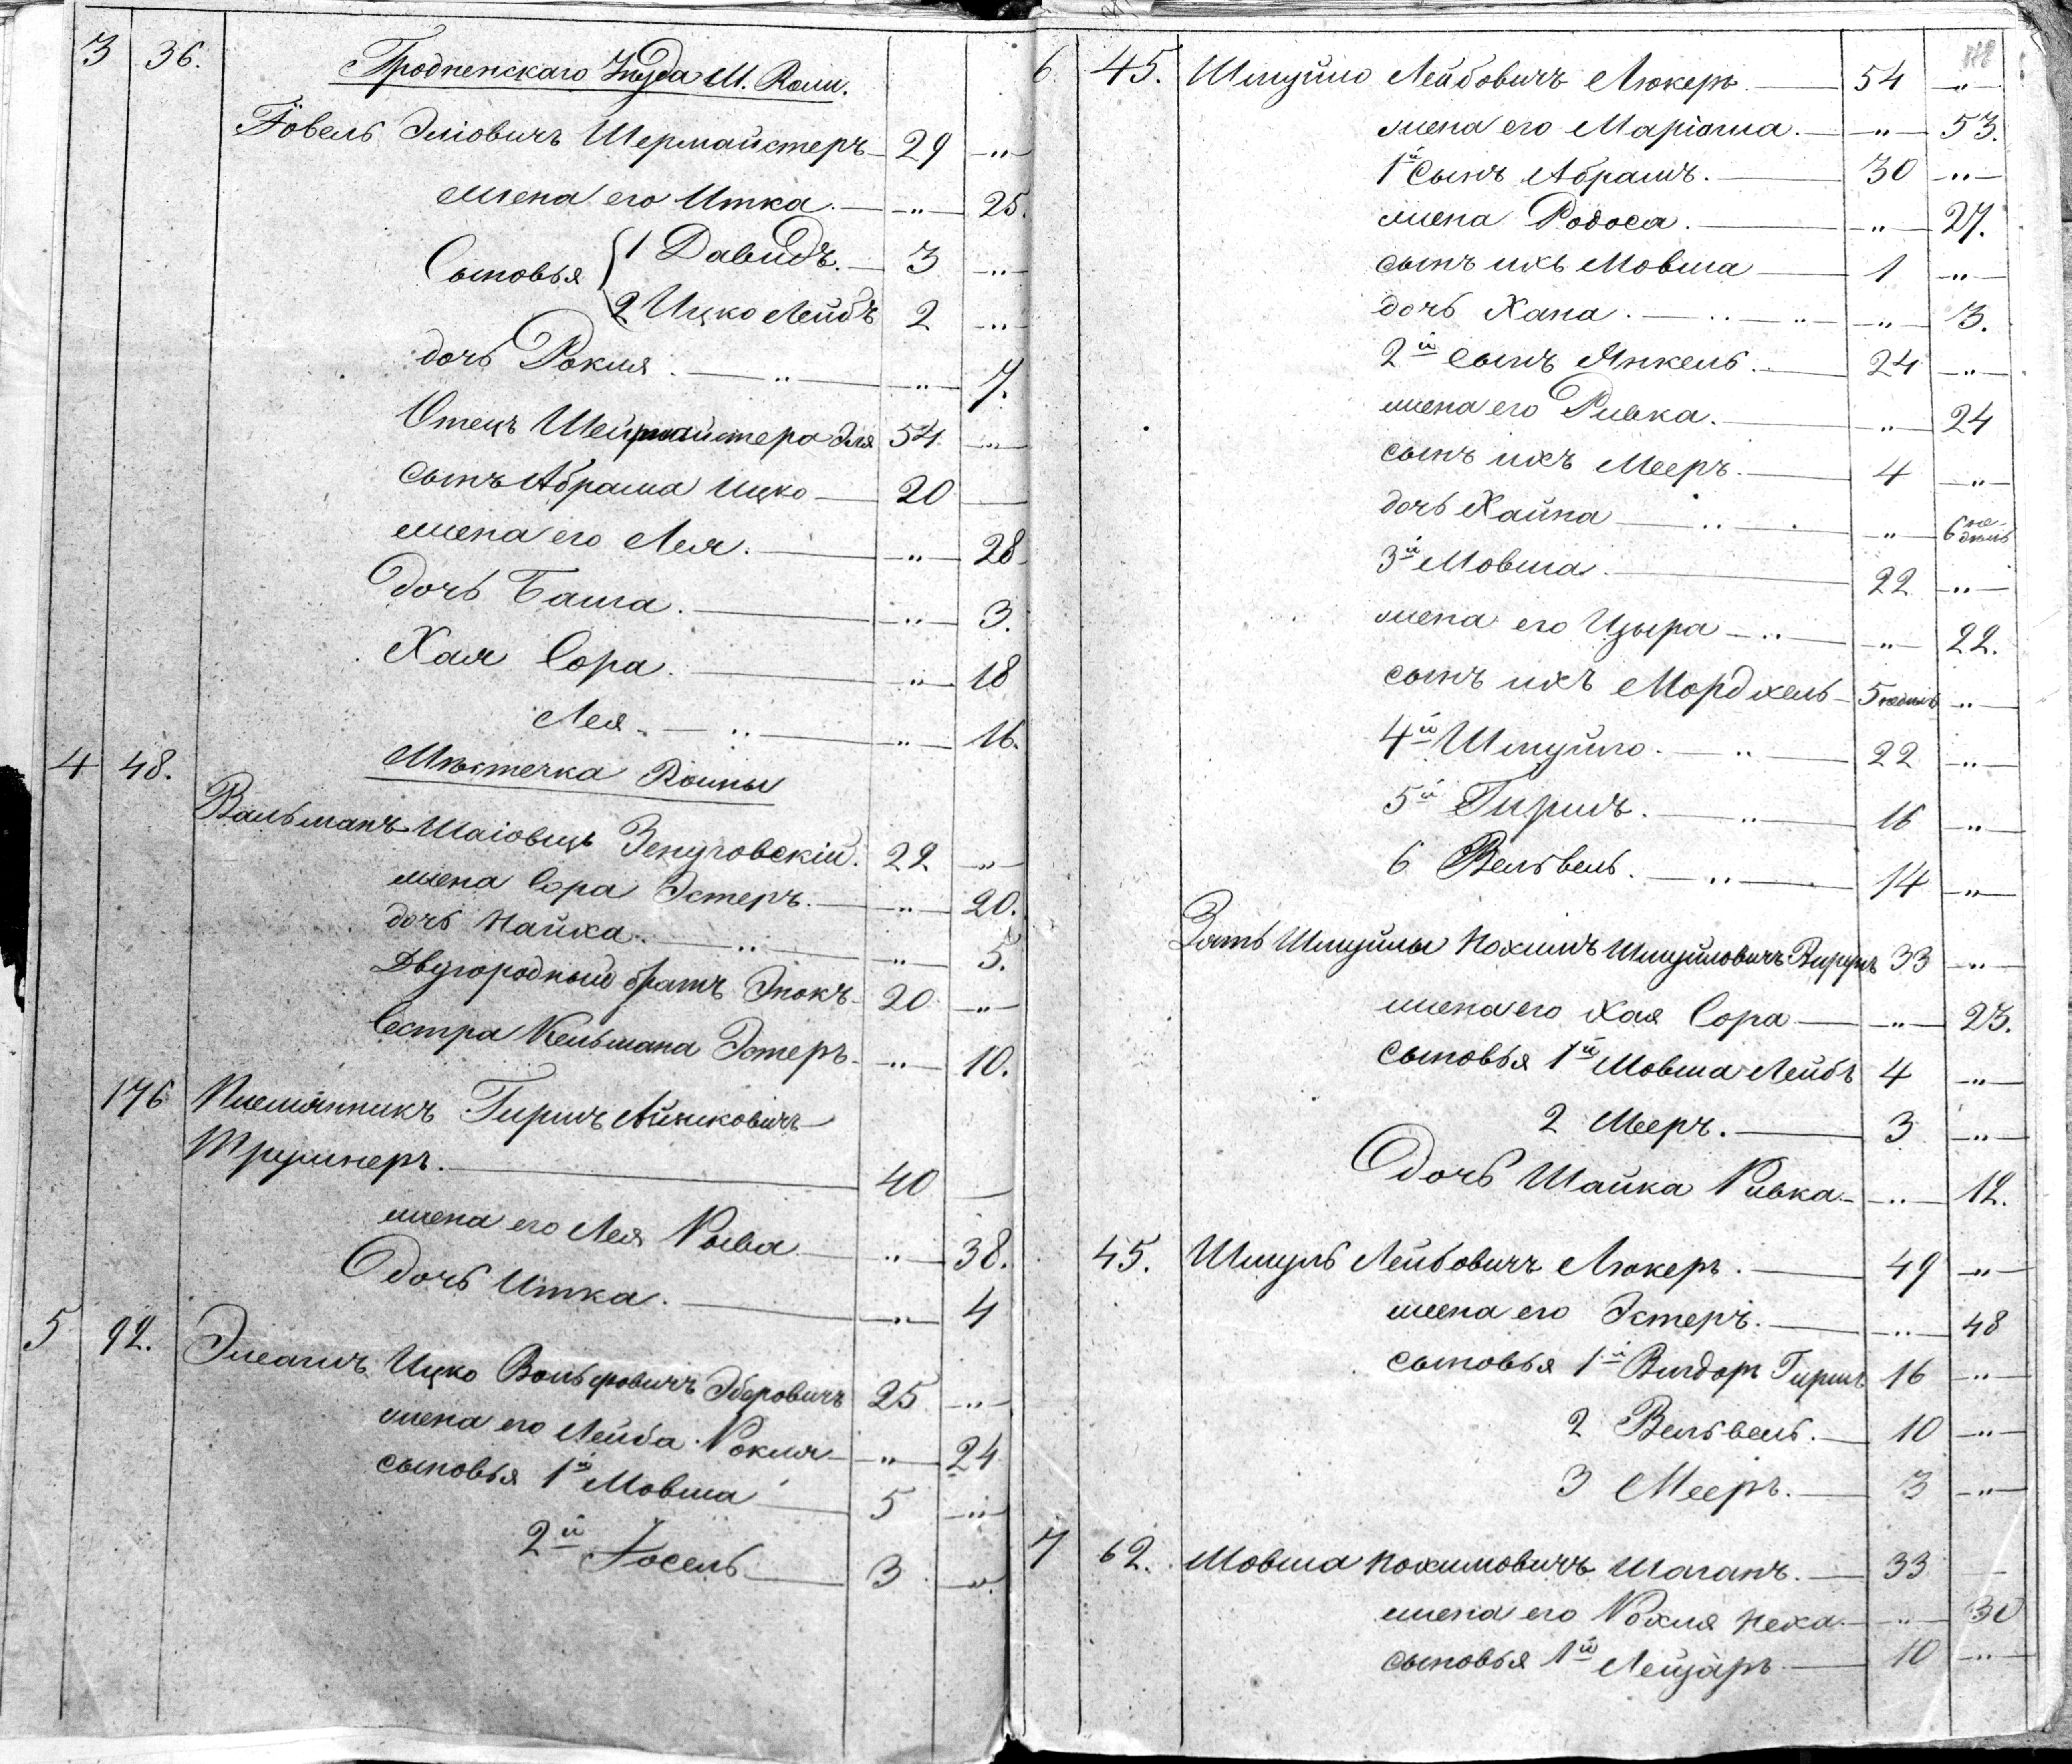 3 36. Гродненскаго Уѣзда М. Волп.
Іовель Эліовичъ Шермайстеръ 29 „
жена его Итка. „ 25.
Сыновья 1 Давидъ. 3 „
2 Ицко Лейбъ 2 „
дочь Рохля. „ „ 7.
Отецъ Шермайстера Эля 54 „
сынъ Абрама Ицко 20
жена его Лея. „ 28
Дочь Баша. „ 3.
Хая Сора. „ 18
Лея. „ „ 16.
4 48. Мѣстечка Волпы
Кальманъ Шаіовичъ 22 „
жена Сора Эстеръ. „ 20.
дочь Хайка. „ „ 5.
Двуюродный братъ Энохъ 20 „
Сестра Кельмана Эстеръ „ 10.
176 Племянникъ Гиршъ Айзиковичъ
40
жена его Лея Рыва „ 38.
дочь Итка. „ 4
5 92. Ицко Вольфовичъ 25 „
жена его Лейба Рохля „ 24
сыновья 1й Мовша 5 „
2й Іосель 3 „
6 45. Шмуйло Лейбовичъ Люкеръ 54 „
жена его Маріаша. „ 53.
1й Сынъ Абрамъ. 30 „
жена Родоса. „ 27.
сынъ ихъ Мовша 1 „
дочь Хана. „ „ „ 3.
2й сынъ Янкель. 24 „
жена его Ривка. „ 24
сынъ ихъ Мееръ. 4 „
дочь Хайна „ „ 6 недѣль
3й Мовша. 22 „
жена его Цыра „ „ 22.
сынъ ихъ Мордхель 5 недѣль „
4й Шмуйло. „ 22 „
5й Гиршъ. „ 16 „
6 Вельвель. „ 14 „
Зять Шмуйлы Нохимъ Шмуйловичъ 33 „
жена его Хая Сора „ 23.
сыновья 1й Мовша Лейбъ 4 „
2 Мееръ. 3 „
дочь Шайка Ривка „ 12.
45. Шмуль Лейбовичъ Люкеръ. 49 „
жена его Эстеръ. „ 48
сыновья 1й Вигдоръ Гиршъ 16 „
2 Вельвель. 10 „
3 Мееръ. 3 „
7 62. Мовша Нохимовичъ Шаганъ. 33
жена его Рохля Неха. „ 30
сыновья 1й Лейзаръ 10 „